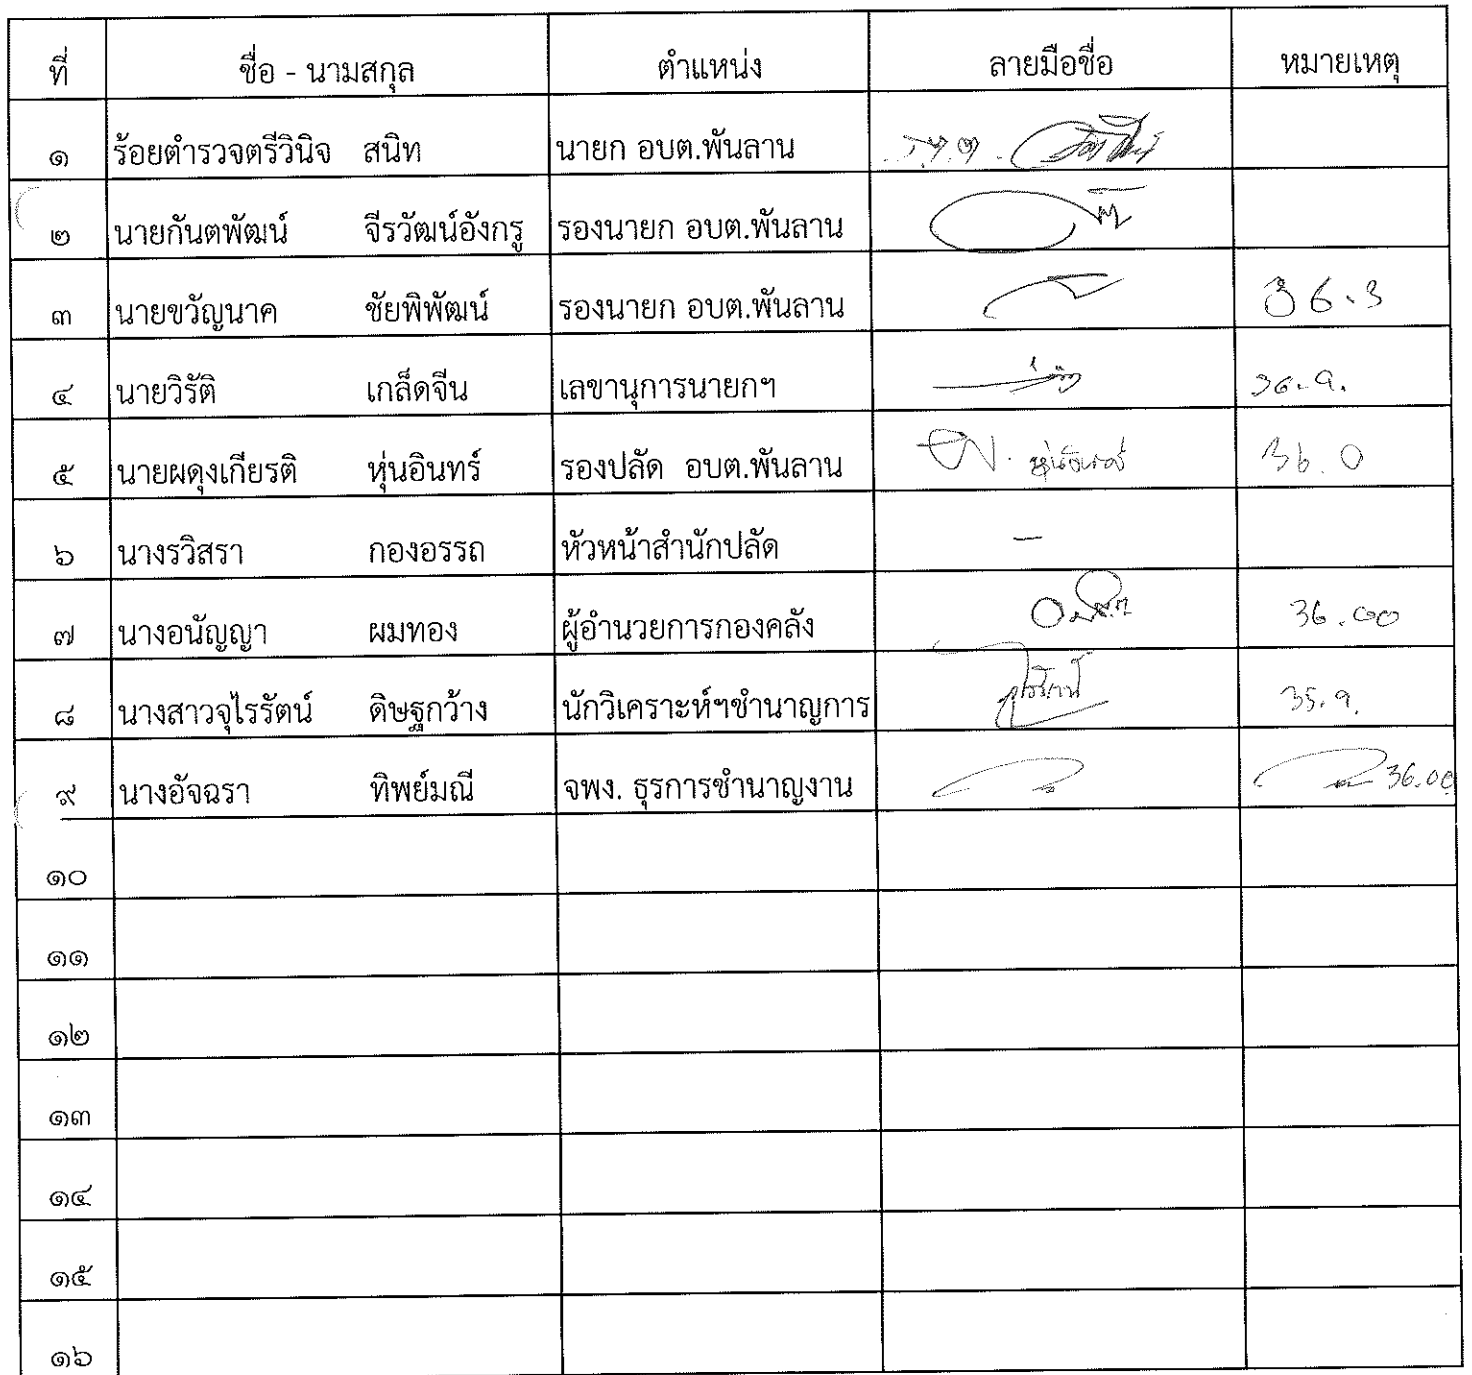 ที่ ชื่อ - นามสกุล ตำแหน่ง ลายมือชื่อ หมายเหตุ
๑ ร้อยตำรวจตรีวินิจ สนิท นายก อบต.พันลาน ร.ต.ต.
๒ นายกันตพัฒน์ จีรวัฒน์อังกรู รองนายก อบต.พันลาน
๓ นายขวัญนาค ชัยพิพัฒน์ รองนายก อบต.พันลาน 36.3
๔ นายวิรัติ เกล็ดจีน เลขานุการนายกฯ 36.9.
๕ นายผดุงเกียรติ หุ่นอินทร์ รองปลัด อบต.พันลาน หุ่นอินทร์ 36.0
๖ นางรวิสรา กองอรรถ หัวหน้าสำนักปลัด -
๗ นางอนัญญา ผมทอง ผู้อำนวยการกองคลัง 36.00
๘ นางสาวจุไรรัตน์ ดิษฐกว้าง นักวิเคราะห์ฯชำนาญการ จุไรรัตน์ 35.9.
๙ นางอัจฉรา ทิพย์มณี จพง. ธุรการชำนาญงาน 36.00
๑๐
๑๑
๑๒
๑๓
๑๔
๑๕
๑๖